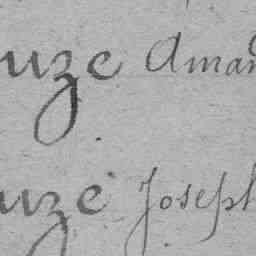 uze Aman
uzé Joseph